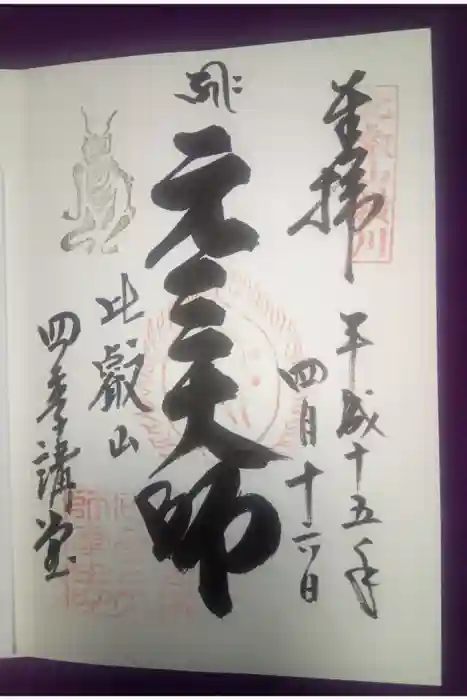 奉拝
平成十五年
四月十六日
元三大師
比叡山
四季講堂